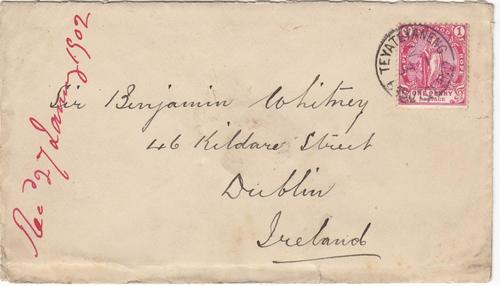 Sir Benjamin Whitney
46 Kildare Street
Dublin
Ireland
Recd 27 January 1902
TEYATEYANENG
1
ONE PENNY